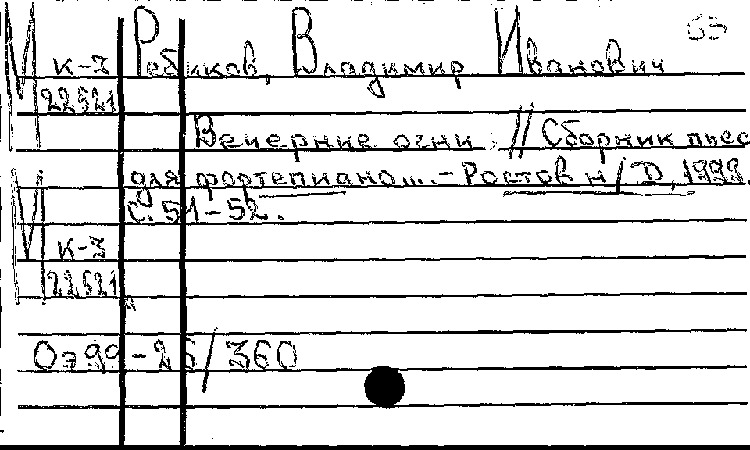 55
М к-3 Ребиков, Владимир Иванович
22521
Вечерние огни // Сборник пьес
для фортепиано... - Ростов н/Д, 1998.
С. 51-52.
М к-3
22521
Оз 99-25/360